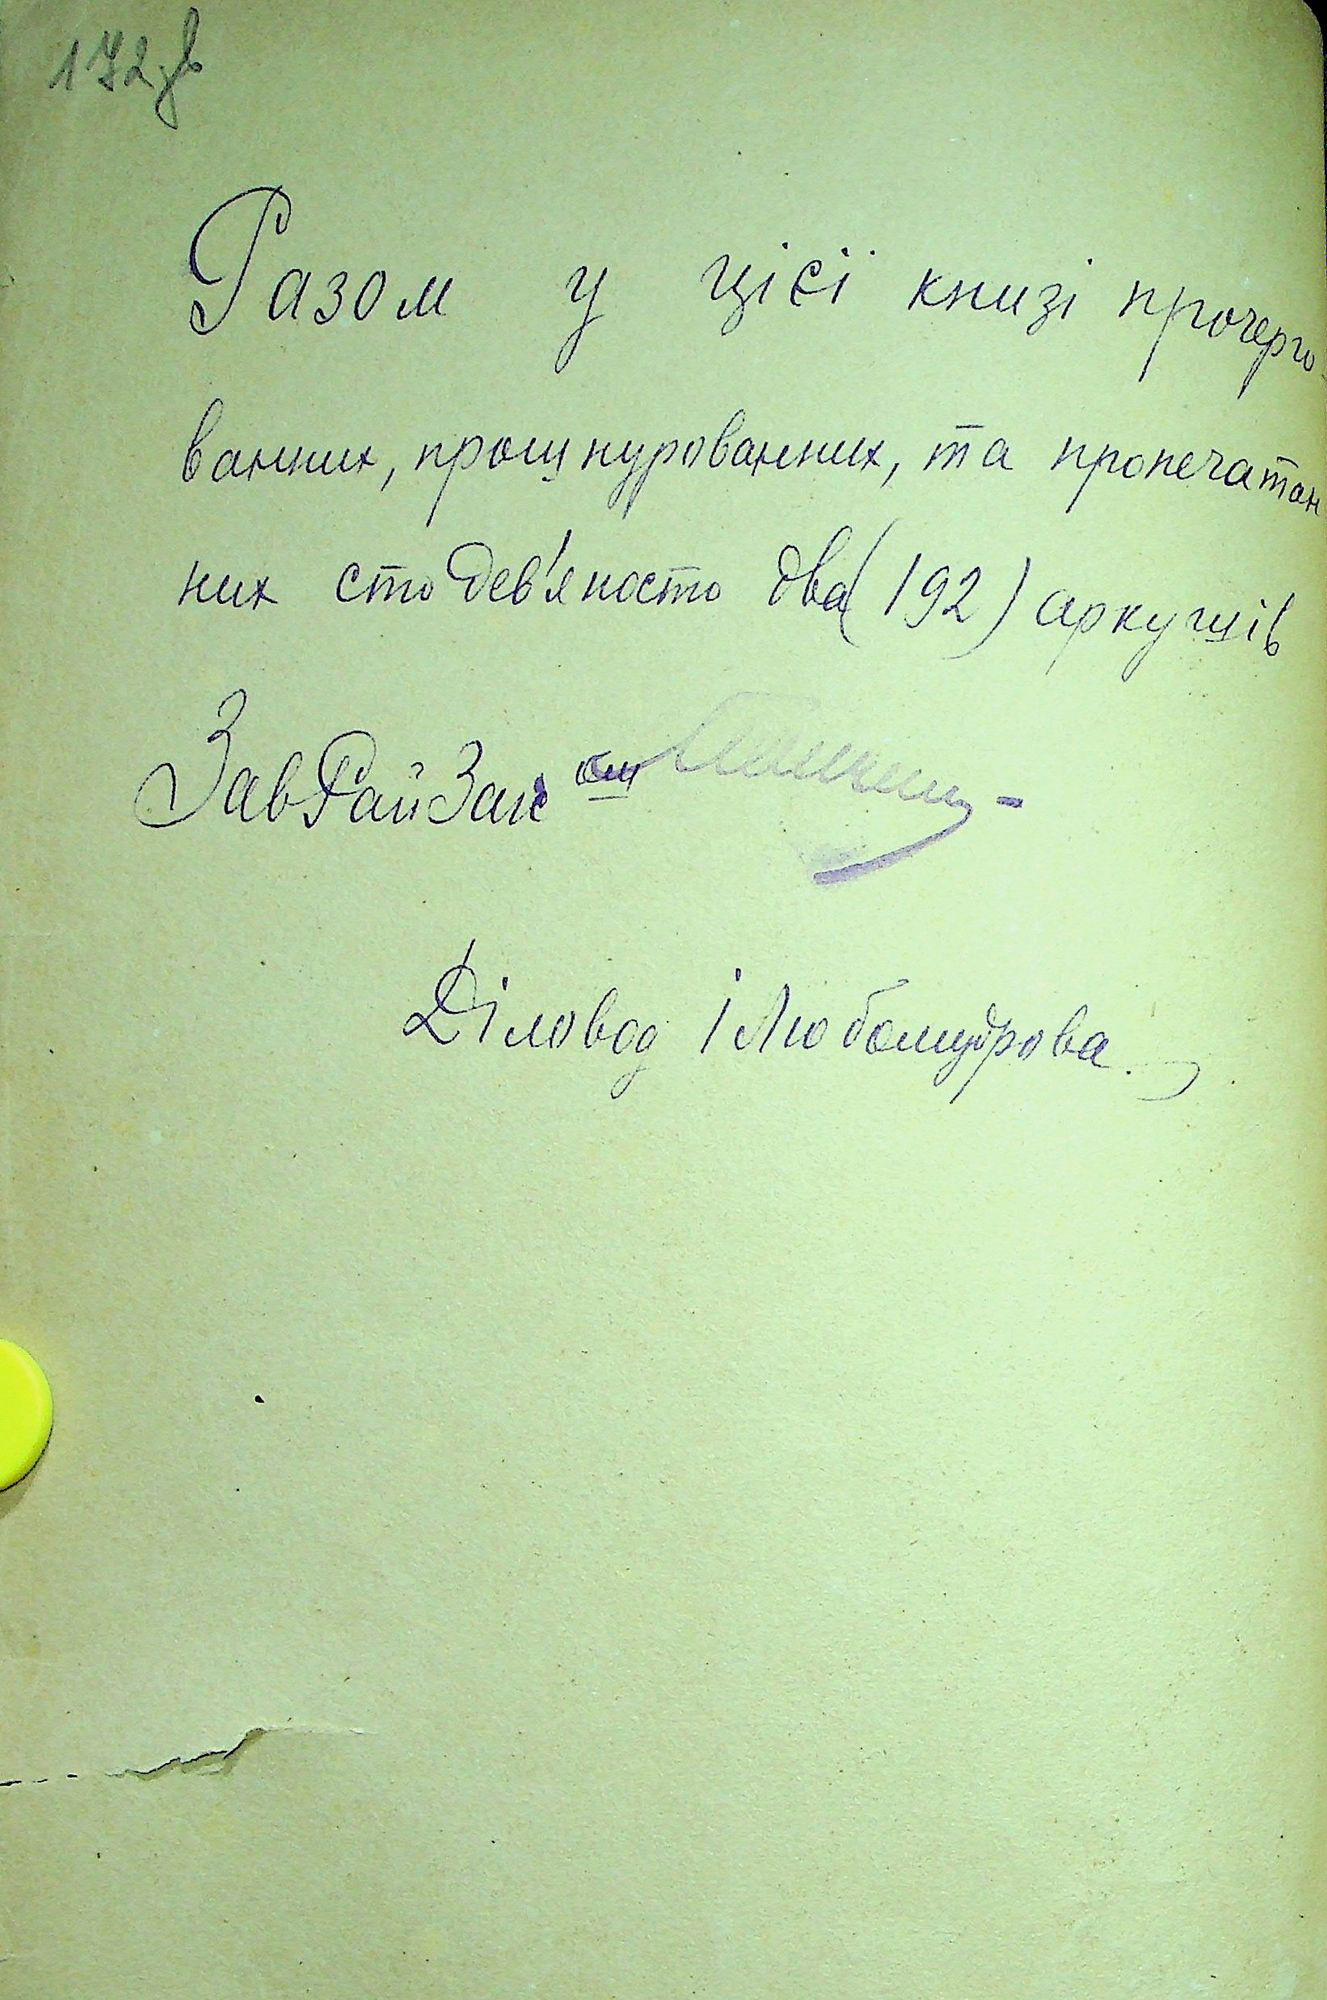 172 зв
Разом у цієї книзі прочерго-
ванних, прошнурованних, та пропечатан
них сто дев'яносто два (192) аркушів
ЗавРайЗаг
Діловод І Любомудрова